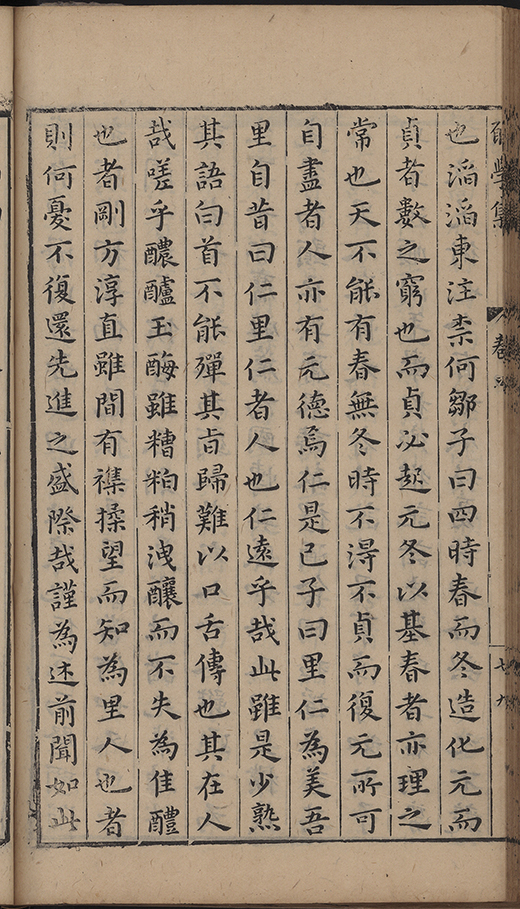 學集
卷
也滔滔東注柰何鄒子曰四時春而冬造化元而
貞者數之窮也而貞必起元冬以基春者亦理之
常也天不能有春無冬時不得不貞而復元所可
自盡者人亦有元德焉仁是已子曰里仁為美吾
里自昔曰仁里仁者人也仁遠乎哉此雖是少熟
其語白首不能殫其旨歸難以口舌傳也其在人
哉嗟乎醲醽玉醅雖糟粕稍洩釀而不失為佳醴
也者剛方淳直雖間有襍揉望而知為里人也者
則何憂不復還先進之盛際哉謹為述前聞如此